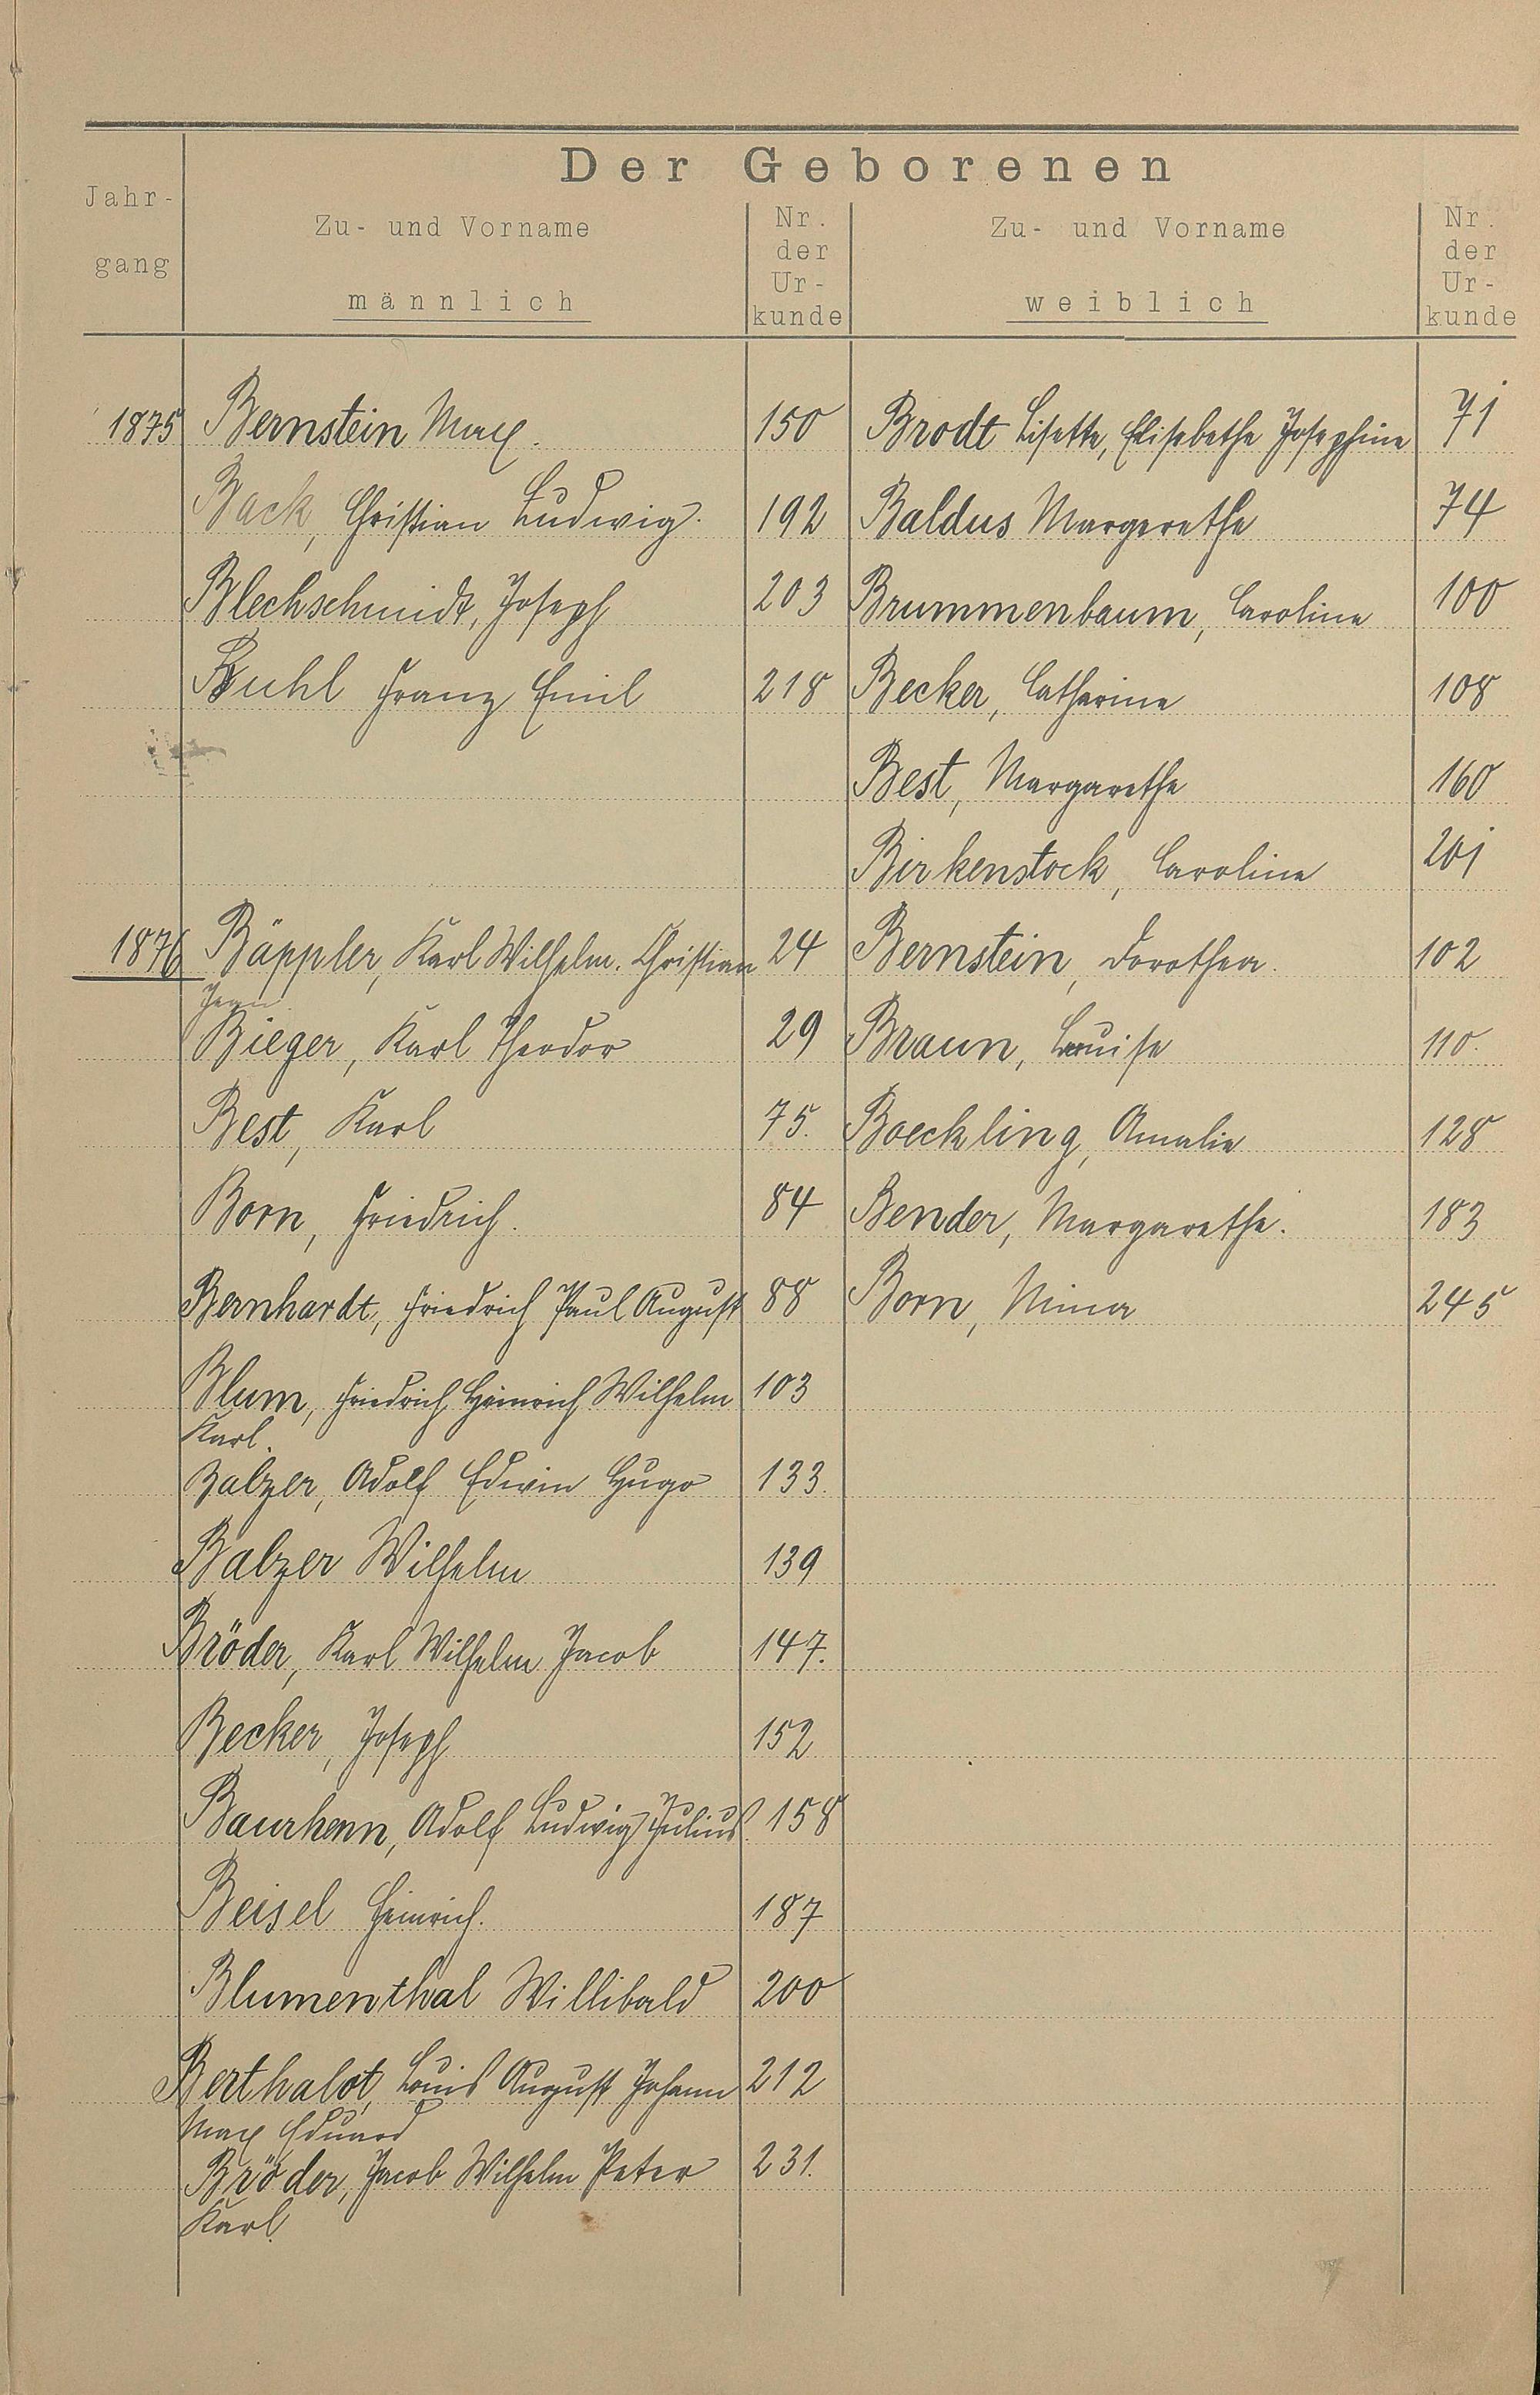 Der Geborenen
Jahr-
gang
Zu- und Vorname
männlich
Nr.
der
Ur-
kunde
Zu- und Vorname
weiblich
Nr.
der
Ur-
kunde
1875 Bernstein Max. 150 Brodt Lisette, Elisabethe Josephine 71
Back, Christian Ludwig. 192 Baldus Margerethe 74
Blechschmidt, Joseph 203 Brummenbaum, Caroline 100
Buhl Franz Emil 218 Becker, Catharine 108
Best, Margarethe 160
Birkenstock, Caroline 201
1876 Bäppler, Karl Wilhelm. Christian 24 Bernstein, Dorothea. 102
Jean
Bieger, Karl Theodor 29 Braun, Louise 110.
Best, Karl 75. Boeckling, Amalie 128
Born, Friedrich. 84 Bender, Margarethe. 183
Bernhardt, Friedrich Paul August 88 Born, Mina 245
Blum, Friedrich Heinrich Wilhelm 103
Karl.
Balzer, Adolf Edwin Hugo 133.
Balzer Wilhelm 139
Bröder, Karl Wilhelm Jacob 147.
Becker, Joseph 152
Baurhenn, Adolf Ludwig Julius. 158
Beisel Heinrich. 187
Blumenthal Willibald 200
Berthalot, Louis August Johann 212
Max Eduard
Bröder, Jacob Wilhelm Peter 231.
Karl.